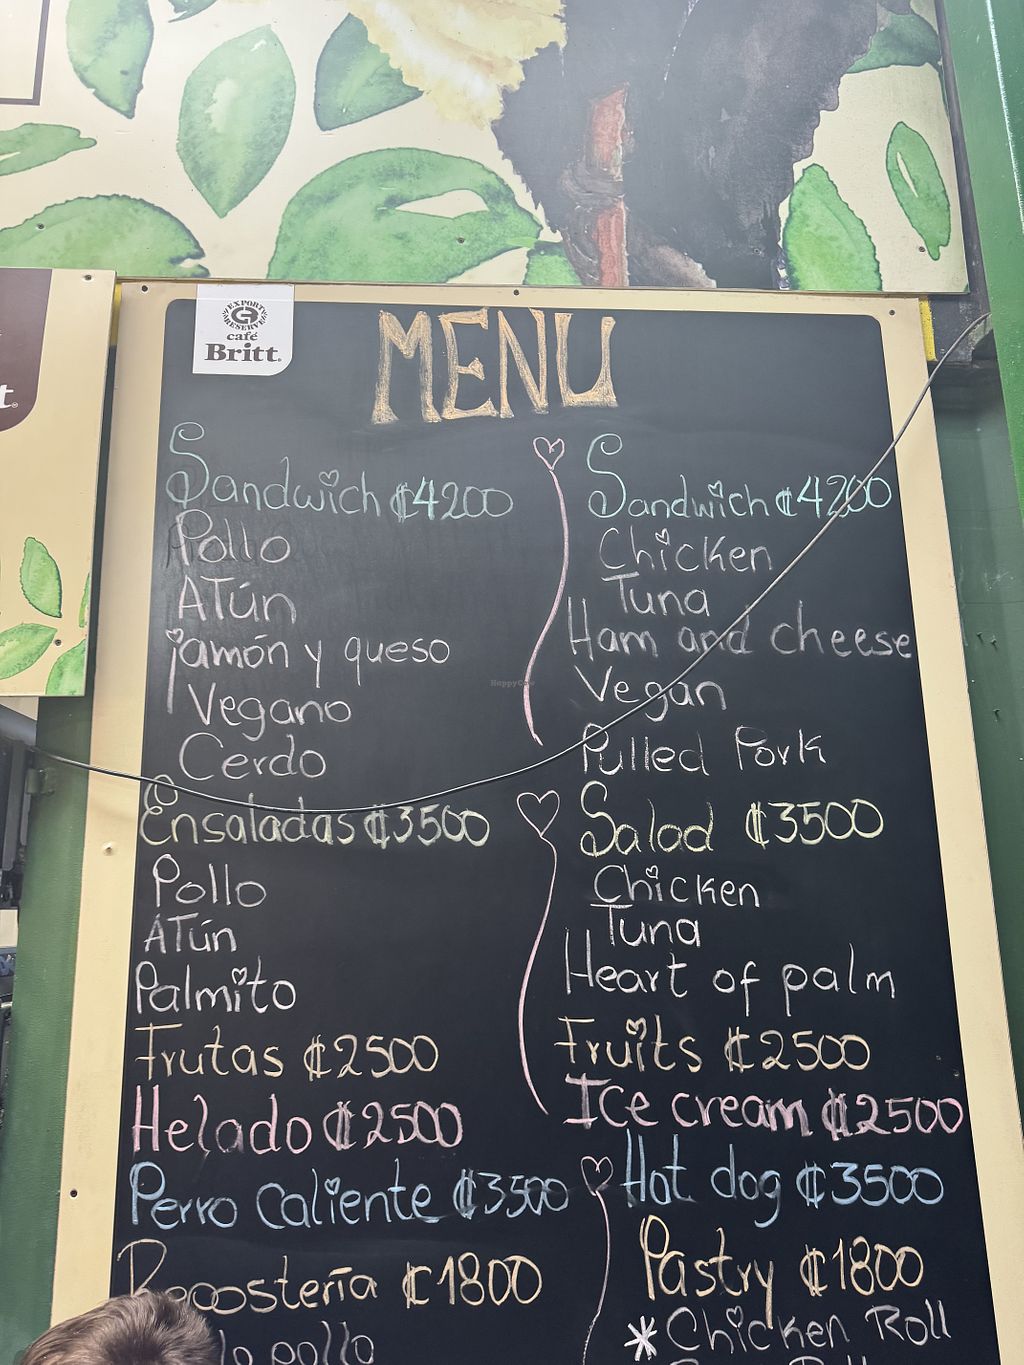 EXPORT
RESERVE
café
Britt®
t®
MENU
Sandwich ₡4200
Pollo
ATún
jamón y queso
Vegano
Cerdo
Ensaladas ₡3500
Pollo
ATún
Palmito
Frutas ₡2500
Helado ₡2500
Perro Caliente ₡3500
Repostería ₡1800
pollo
Sandwich ₡4200
Chicken
Tuna
Ham and cheese
Vegan
Pulled Pork
Salad ₡3500
Chicken
Tuna
Heart of palm
Fruits ₡2500
Ice cream ₡2500
Hot dog ₡3500
Pastry ₡1800
* Chicken Roll
HappyCow